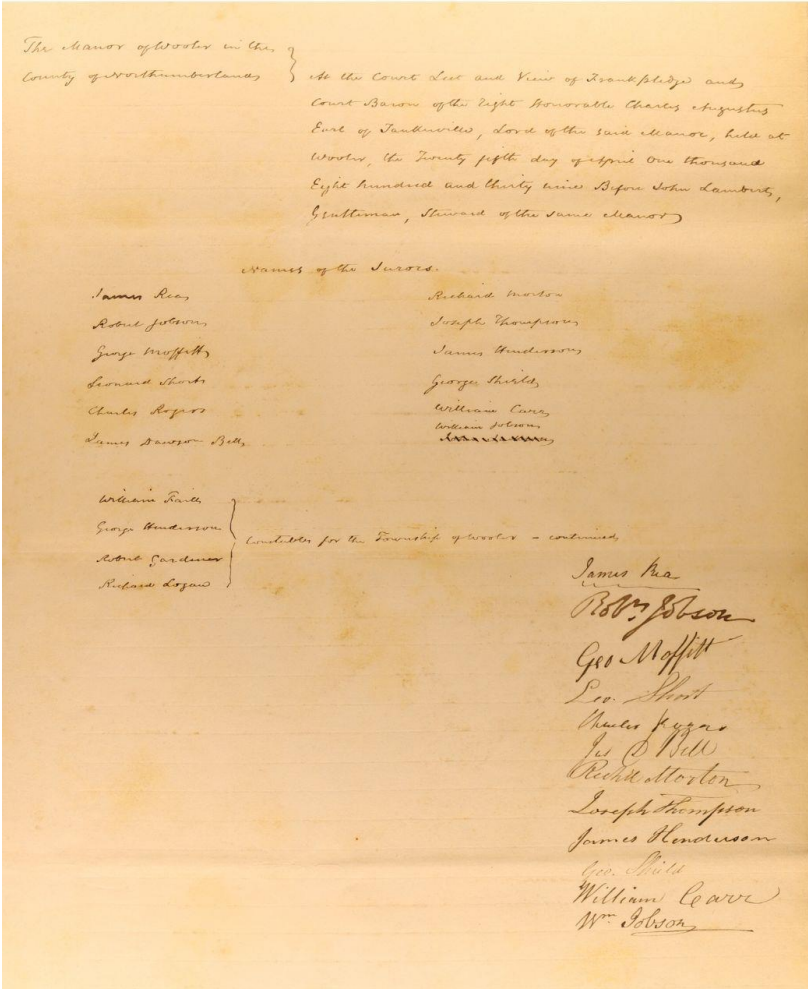 The Manor of Wooler in the
County of Northumberland
At the Court Leet and View of Frankpledge and
Court Baron of the Right Honorable Charles Augustus
Earl of Tankerville, Lord of the said Manor, held at
Wooler, the Twenty fifth day of April One thousand
Eight hundred and thirty nine Before John Lambert,
Gentleman, Steward of the same Manor
Names of the Jurors.
James Rea
Robert Jobson
George Moffitt
Leonard Short
Charles Rogers
James Dawson Bell
Richard Morton
Joseph Thompson
James Henderson
George Shield
William Carr
William Jobson
William
George Henderson
Robert Gardiner
Richard Logan
Constables for the Township of Wooler - continued
James Rea
Robt. Jobson
Geo Moffitt
Leo. Short
Charles Rogers
Jas D Bell
Richd Morton
Joseph Thompson
James Henderson
Geo. Shield
William Carr
Wm Jobson